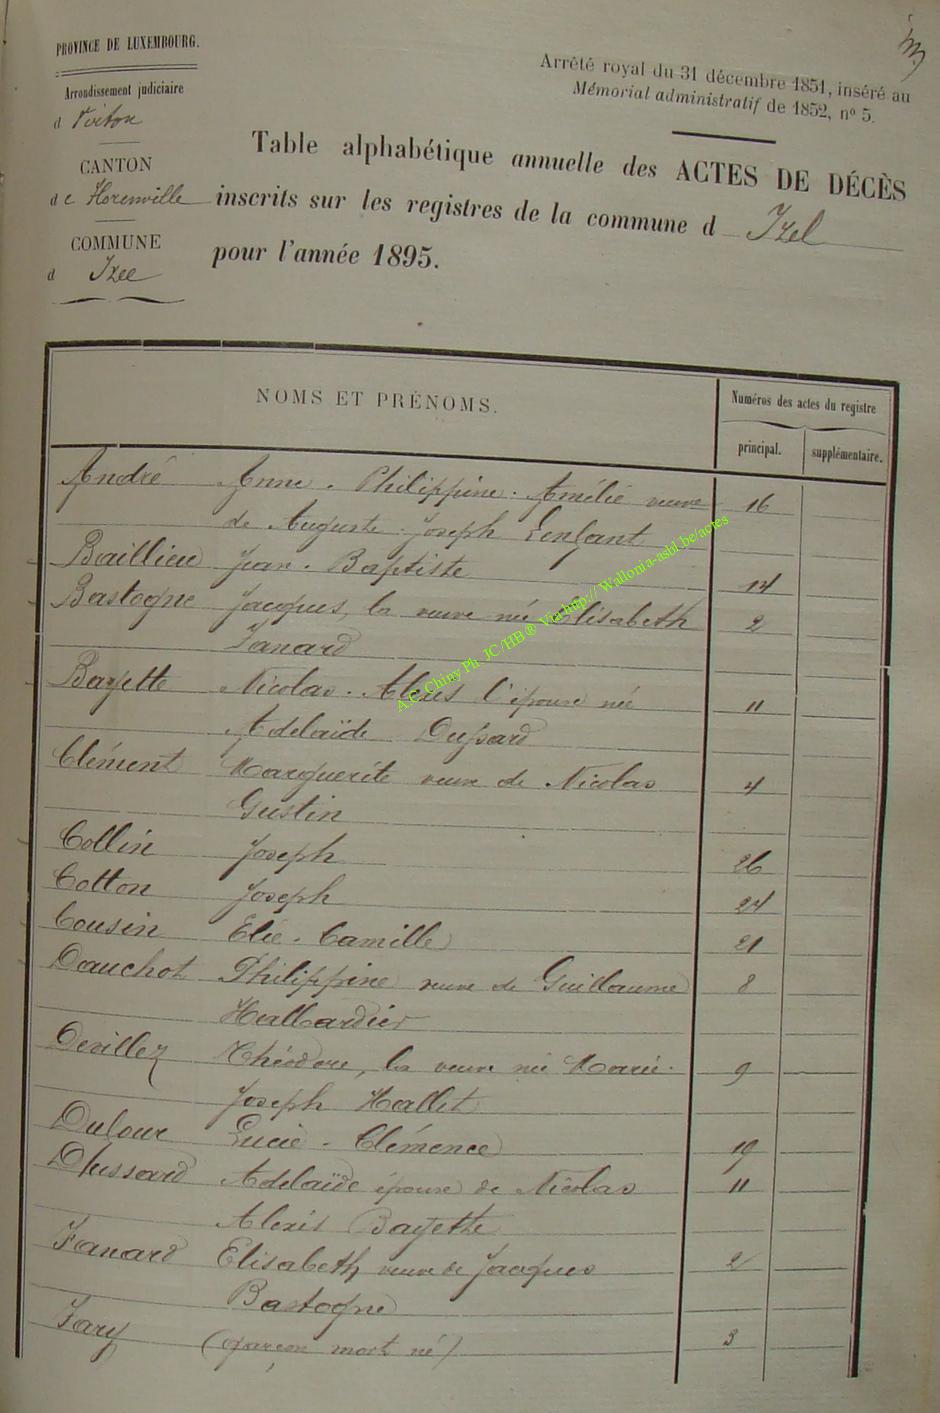 PROVINCE DE LUXEMBOURG.
Arrondissement judiciaire
d Virton
CANTON
de Florenville
COMMUNE
d Izel
Arrêté royal du 31 décembre 1851, inséré au
Mémorial administratif de 1852, nº 5.
Table alphabétique annuelle des ACTES DE DÉCÈS
inscrits sur les registres de la commune d Izel
pour l'année 1895.
NOMS ET PRÉNOMS.
Numéros des actes du registre
principal. supplémentaire.
André Anne - Philippine - Amélie veuve 16
de Auguste - Joseph Lenfant
Baillieu Jean - Baptiste 14
Bastogne Jacques, la veuve née Elisabeth 2
Fanard
Bayette Nicolas - Alexis l'épouse née 11
Adelaïde Dussard
Clément Marguerite veuve de Nicolas 4
Gustin
Collin Joseph 26
Cotton Joseph 24
Cousin Elie - Camille 21
Dauchot Philippine veuve de Guillaume 8
Hallardier
Devillez Théodore, la veuve née Marie - 9
Joseph Hallet
Dulour Lucie - Clémence 19
Dhussard Adelaïde épouse de Nicolas 11
Alexis Bayette
Fanard Elisabeth veuve de Jacques 2
Bastogne
Fary (garçon mort né) 3
A.C. Chiny Ph. JC/HB ® Via http:// Wallonia-asbl.be/actes